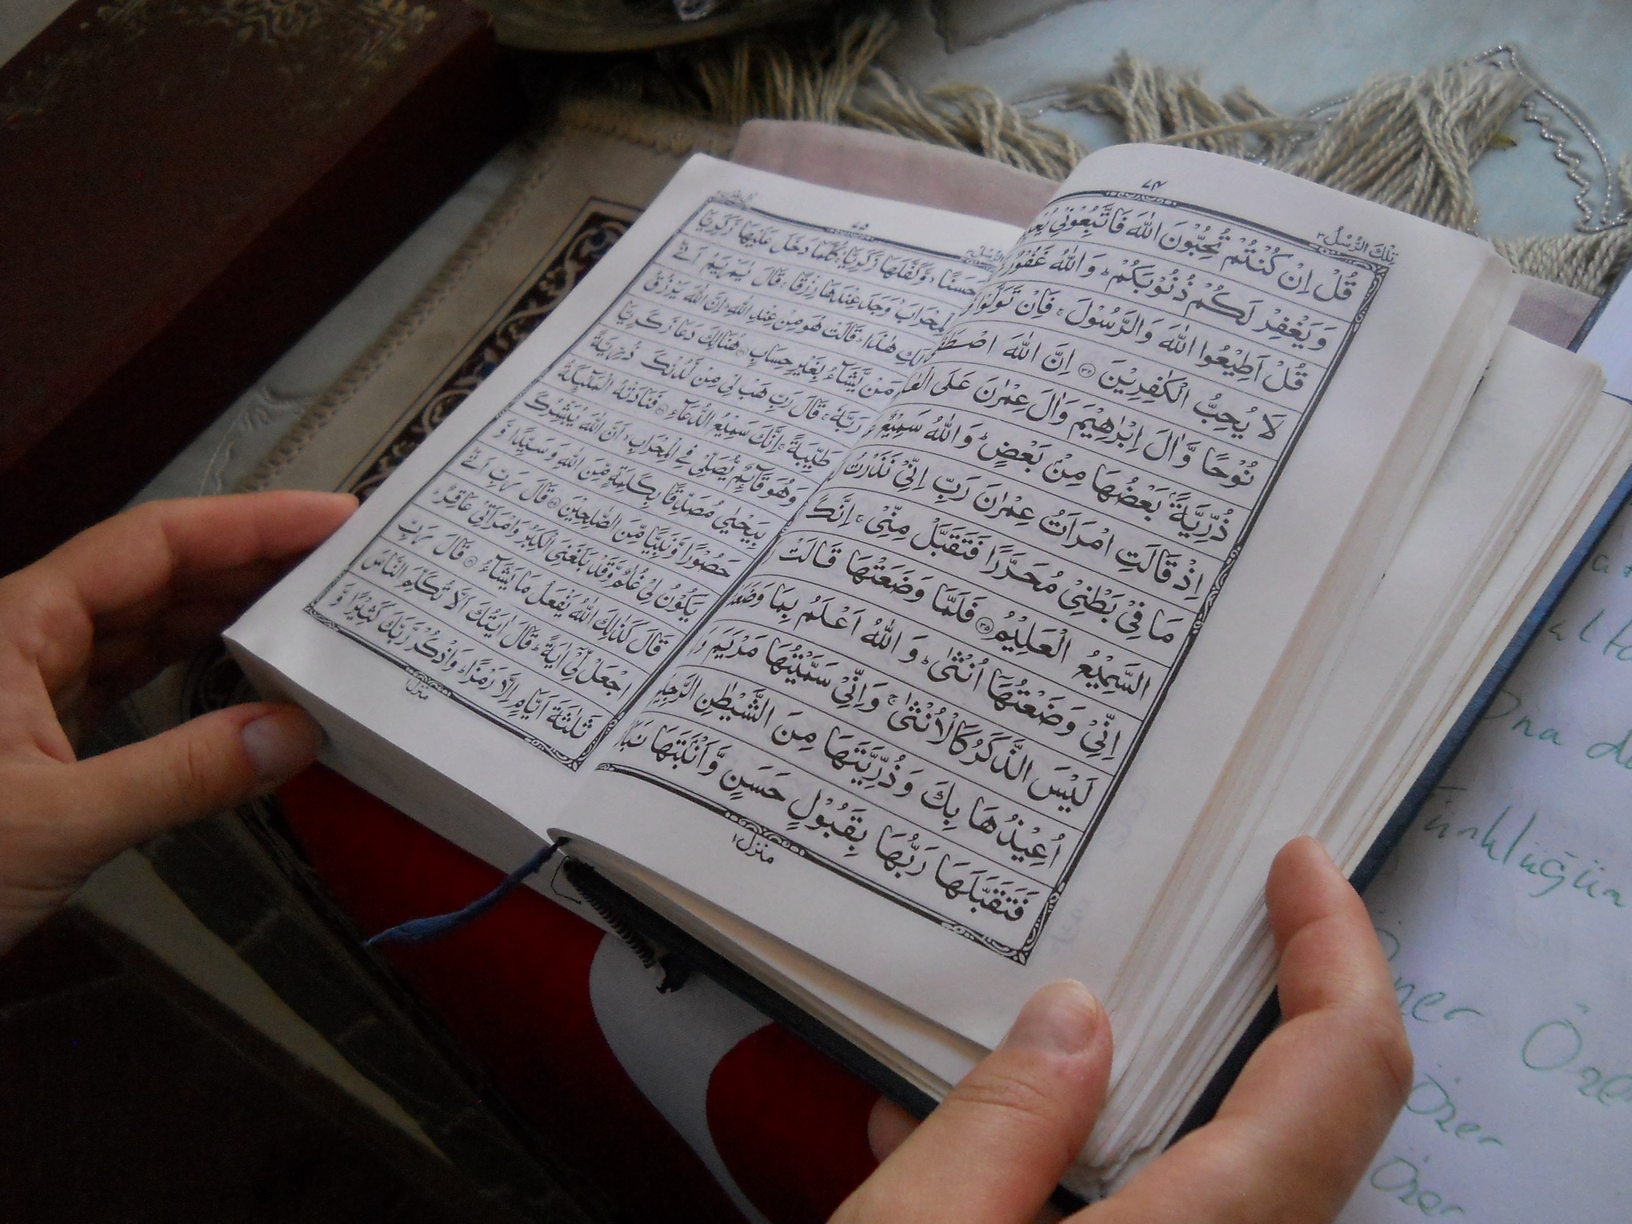 تِلْكَ الرُّسُلُ ٣
٧٤
قُلْ اِنْ كُنْتُمْ تُحِبُّوْنَ اللّٰهَ فَاتَّبِعُوْنِيْ
وَيَغْفِرْ لَكُمْ ذُنُوْبَكُمْ ؕ وَاللّٰهُ غَفُوْرٌ
قُلْ اَطِيْعُوا اللّٰهَ وَالرَّسُوْلَ ۚ فَاِنْ تَوَلَّوْا
لَا يُحِبُّ الْكٰفِرِيْنَ ﴿۳۲﴾ اِنَّ اللّٰهَ
نُوْحًا وَّاٰلَ اِبْرٰهِيْمَ وَاٰلَ عِمْرٰنَ عَلَى
ذُرِّيَّةًۢ بَعْضُهَا مِنْۢ بَعْضٍ ؕ وَاللّٰهُ سَمِيْعٌ
اِذْ قَالَتِ امْرَاَتُ عِمْرٰنَ رَبِّ اِنِّيْ نَذَرْتُ
مَا فِيْ بَطْنِيْ مُحَرَّرًا فَتَقَبَّلْ مِنِّيْ ۚ اِنَّكَ
السَّمِيْعُ الْعَلِيْمُ ﴿۳۵﴾ فَلَمَّا وَضَعَتْهَا قَالَتْ
اِنِّيْ وَضَعْتُهَاۤ اُنْثٰى ؕ وَاللّٰهُ اَعْلَمُ بِمَا
لَيْسَ الذَّكَرُ كَالْاُنْثٰى ۚ وَاِنِّيْ سَمَّيْتُهَا مَرْيَمَ
اُعِيْذُهَا بِكَ وَذُرِّيَّتَهَا مِنَ الشَّيْطٰنِ الرَّجِيْمِ
فَتَقَبَّلَهَا رَبُّهَا بِقَبُوْلٍ حَسَنٍ وَّاَنْۢبَتَهَا
منزل ١
٧٥
حَسَنًا ۙ وَّكَفَّلَهَا زَكَرِيَّا ؕ كُلَّمَا دَخَلَ عَلَيْهَا زَكَرِيَّا
الْمِحْرَابَ ۙ وَجَدَ عِنْدَهَا رِزْقًا ۚ قَالَ يٰمَرْيَمُ اَنّٰى
لَكِ هٰذَا ؕ قَالَتْ هُوَ مِنْ عِنْدِ اللّٰهِ ؕ اِنَّ اللّٰهَ يَرْزُقُ
مَنْ يَّشَآءُ بِغَيْرِ حِسَابٍ ﴿۳۷﴾ هُنَالِكَ دَعَا زَكَرِيَّا
رَبَّهٗ ۚ قَالَ رَبِّ هَبْ لِيْ مِنْ لَّدُنْكَ ذُرِّيَّةً
طَيِّبَةً ۚ اِنَّكَ سَمِيْعُ الدُّعَآءِ ﴿۳۸﴾ فَنَادَتْهُ الْمَلٰٓئِكَةُ
وَهُوَ قَآئِمٌ يُّصَلِّيْ فِي الْمِحْرَابِ ۙ اَنَّ اللّٰهَ يُبَشِّرُكَ
بِيَحْيٰى مُصَدِّقًۢا بِكَلِمَةٍ مِّنَ اللّٰهِ وَسَيِّدًا وَّ
حَصُوْرًا وَّنَبِيًّا مِّنَ الصّٰلِحِيْنَ ﴿۳۹﴾ قَالَ رَبِّ اَنّٰى
يَكُوْنُ لِيْ غُلٰمٌ وَّقَدْ بَلَغَنِيَ الْكِبَرُ وَامْرَاَتِيْ عَاقِرٌ ؕ
قَالَ كَذٰلِكَ اللّٰهُ يَفْعَلُ مَا يَشَآءُ ﴿۴۰﴾ قَالَ رَبِّ
اجْعَلْ لِّيْۤ اٰيَةً ؕ قَالَ اٰيَتُكَ اَلَّا تُكَلِّمَ النَّاسَ
ثَلٰثَةَ اَيَّامٍ اِلَّا رَمْزًا ؕ وَاذْكُرْ رَّبَّكَ كَثِيْرًا وَّ
منزل ١
Ona
Türklüğün
Öner
Özer
Özer